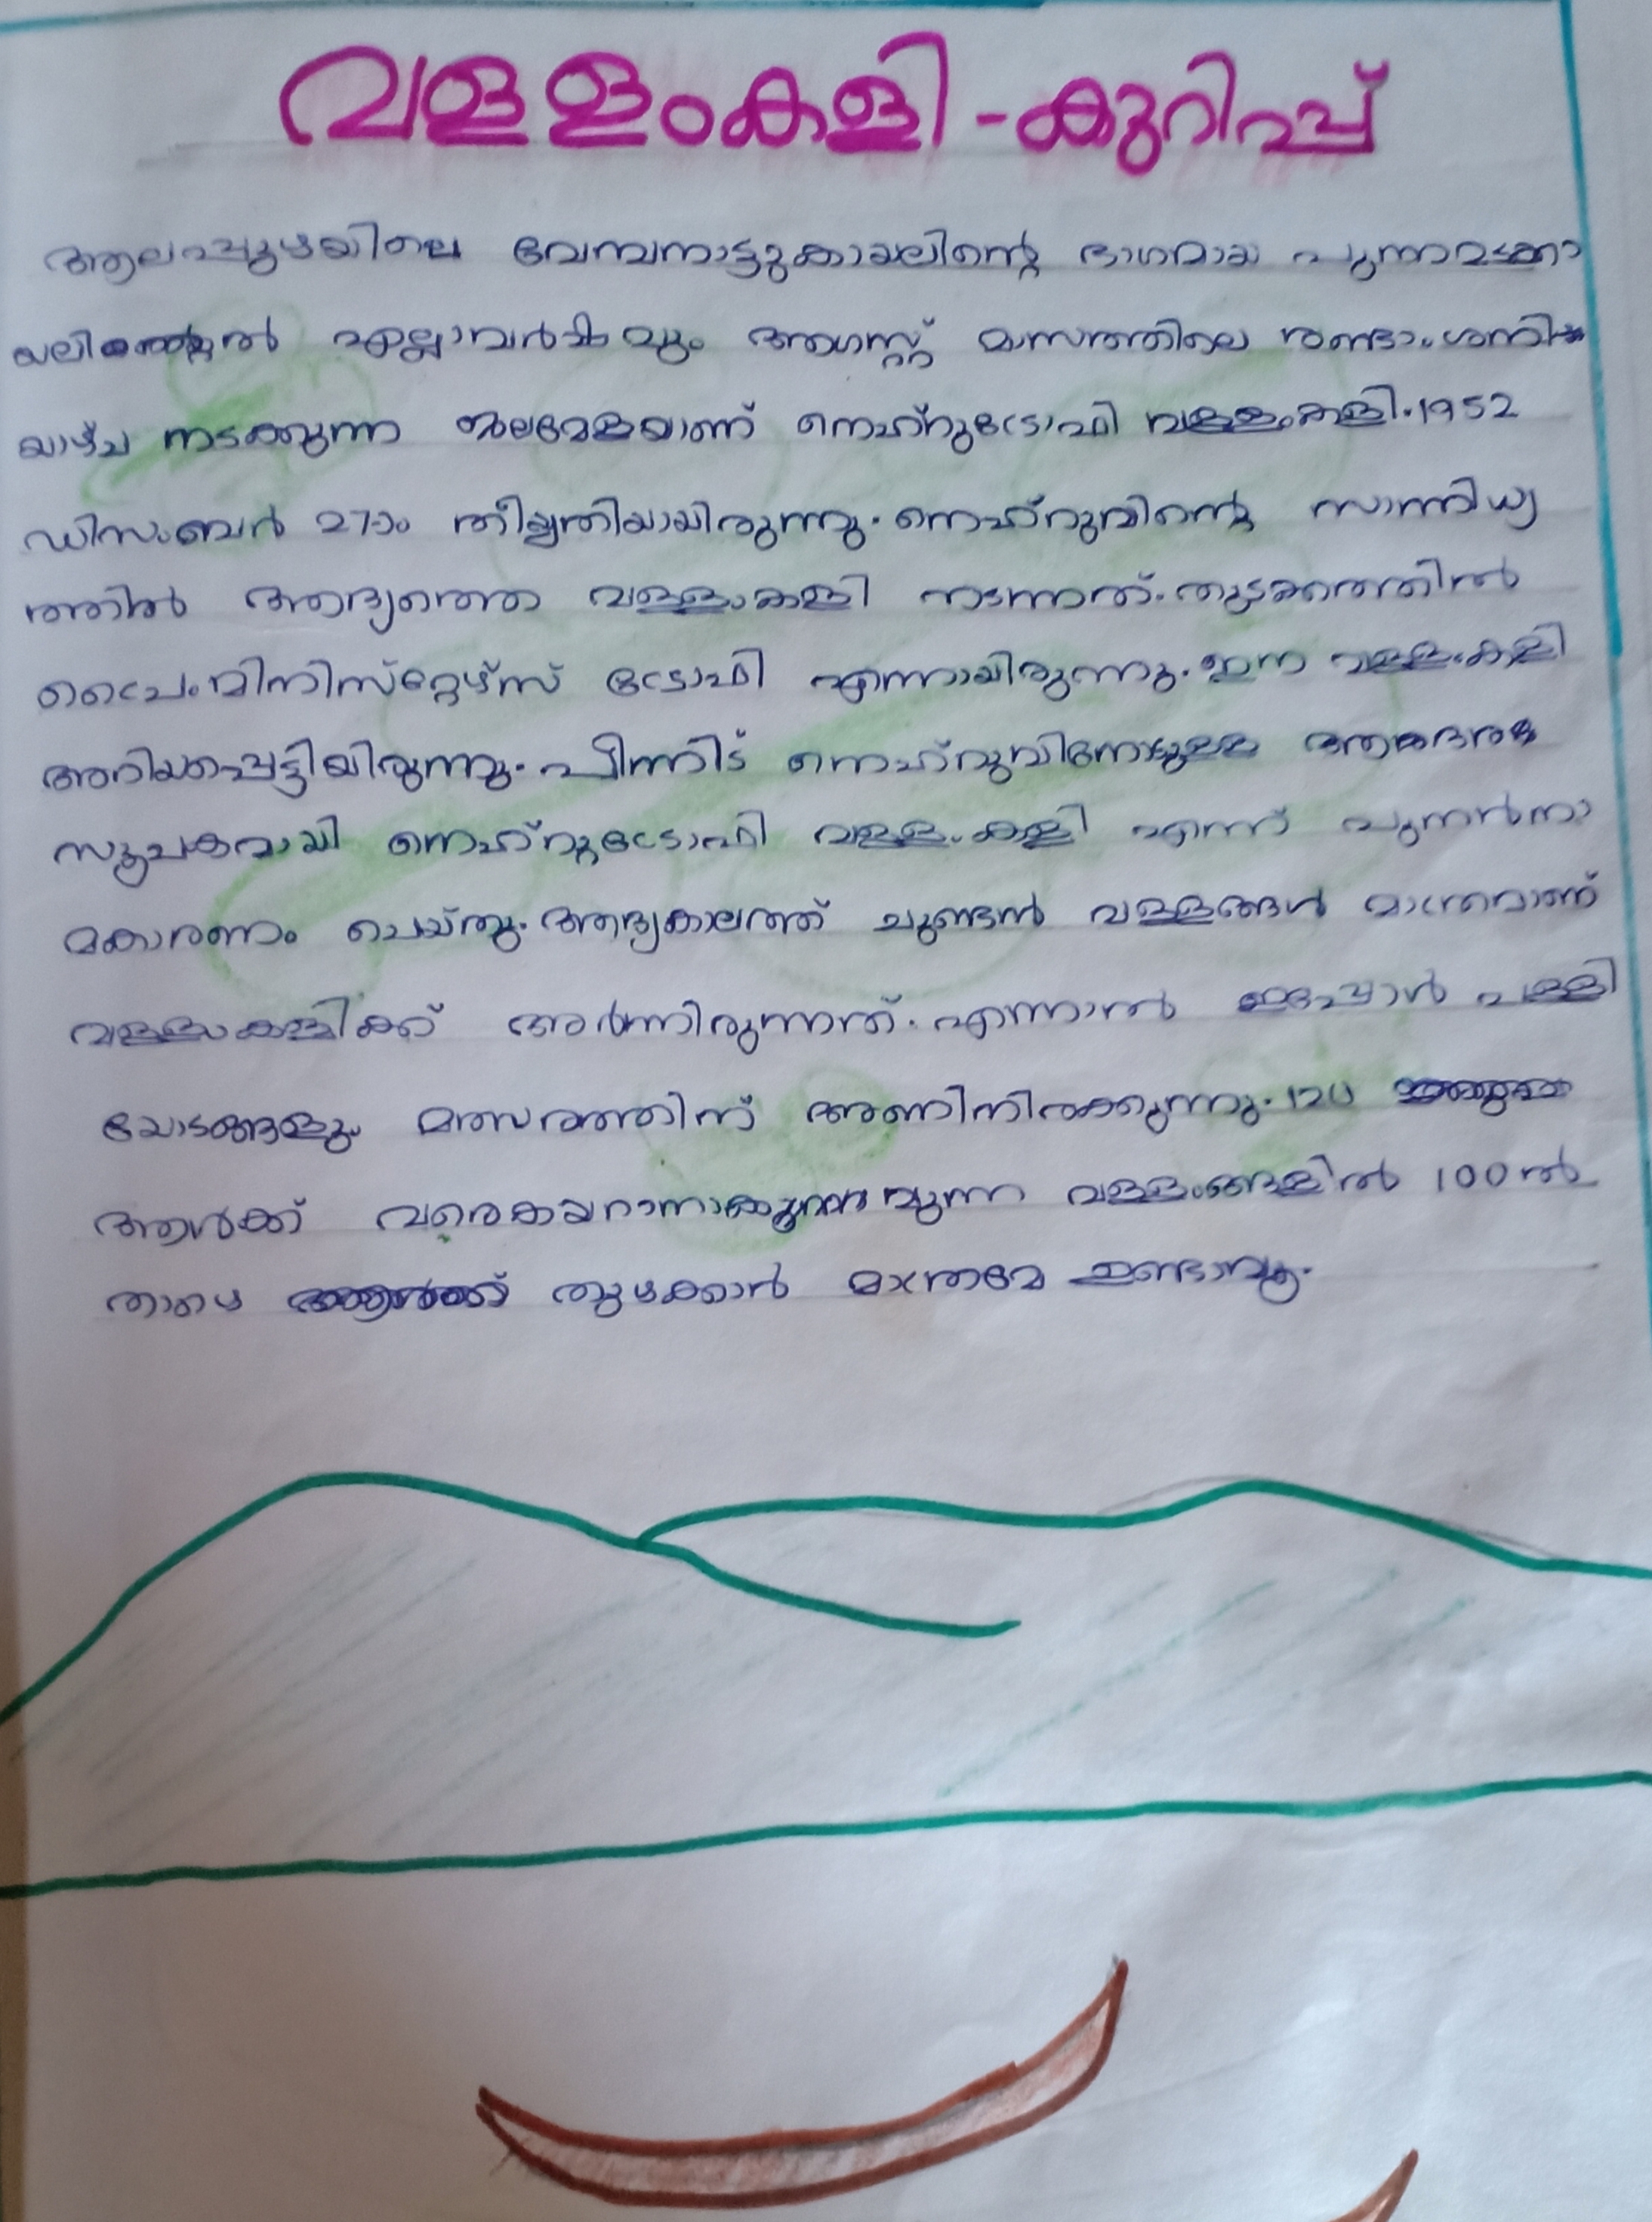 വള്ളംകളി - കുറിപ്പ്
ആലപ്പുഴയിലെ വേമ്പനാട്ടുകായലിന്റെ ഭാഗമായ പുന്നമടക്കാ
യലിൽ എല്ലാവർഷവും അഗസ്റ്റ് മാസത്തിലെ രണ്ടാംശനി
യാഴ്ച നടക്കുന്ന ജലമേളയാണ് നെഹ്റുട്രോഫി വള്ളംകളി. 1952
ഡിസംബർ 27ാം തീയ്യതിയായിരുന്നു. നെഹ്റുവിന്റെ സാന്നിധ്യ
ത്തിൽ ആദ്യത്തെ വള്ളംകളി നടന്നത്. തുടക്കത്തിൽ
പ്രൈംമിനിസ്റ്റേഴ്സ് ട്രോഫി എന്നായിരുന്നു. ഈ വള്ളംകളി
അറിയപ്പെട്ടിയിരുന്നു. പീന്നിട് നെഹ്റുവിനോടുള്ള ആദര
സൂചകവായി നെഹ്റുട്രോഫി വള്ളംകളി എന്ന് പുനർനാ
മകാരണം ചെയ്തു. ആദ്യകാലത്ത് ചുണ്ടൻ വള്ളങ്ങൾ മാത്രമാണ്
വള്ളംകളിക്ക് അർന്നിരുന്നത്. എന്നാൽ ഇപ്പോൾ പള്ളി
യോടങ്ങളും മത്സരത്തിന് അണിനിരക്കുന്നു. 120
ആൾക്ക് വരെകയറാനാകു വുന്ന വള്ളംങ്ങളിൽ 100ൽ
താഴെ തുഴക്കാൻ മാത്രമേ ഉണ്ടാവൂ.